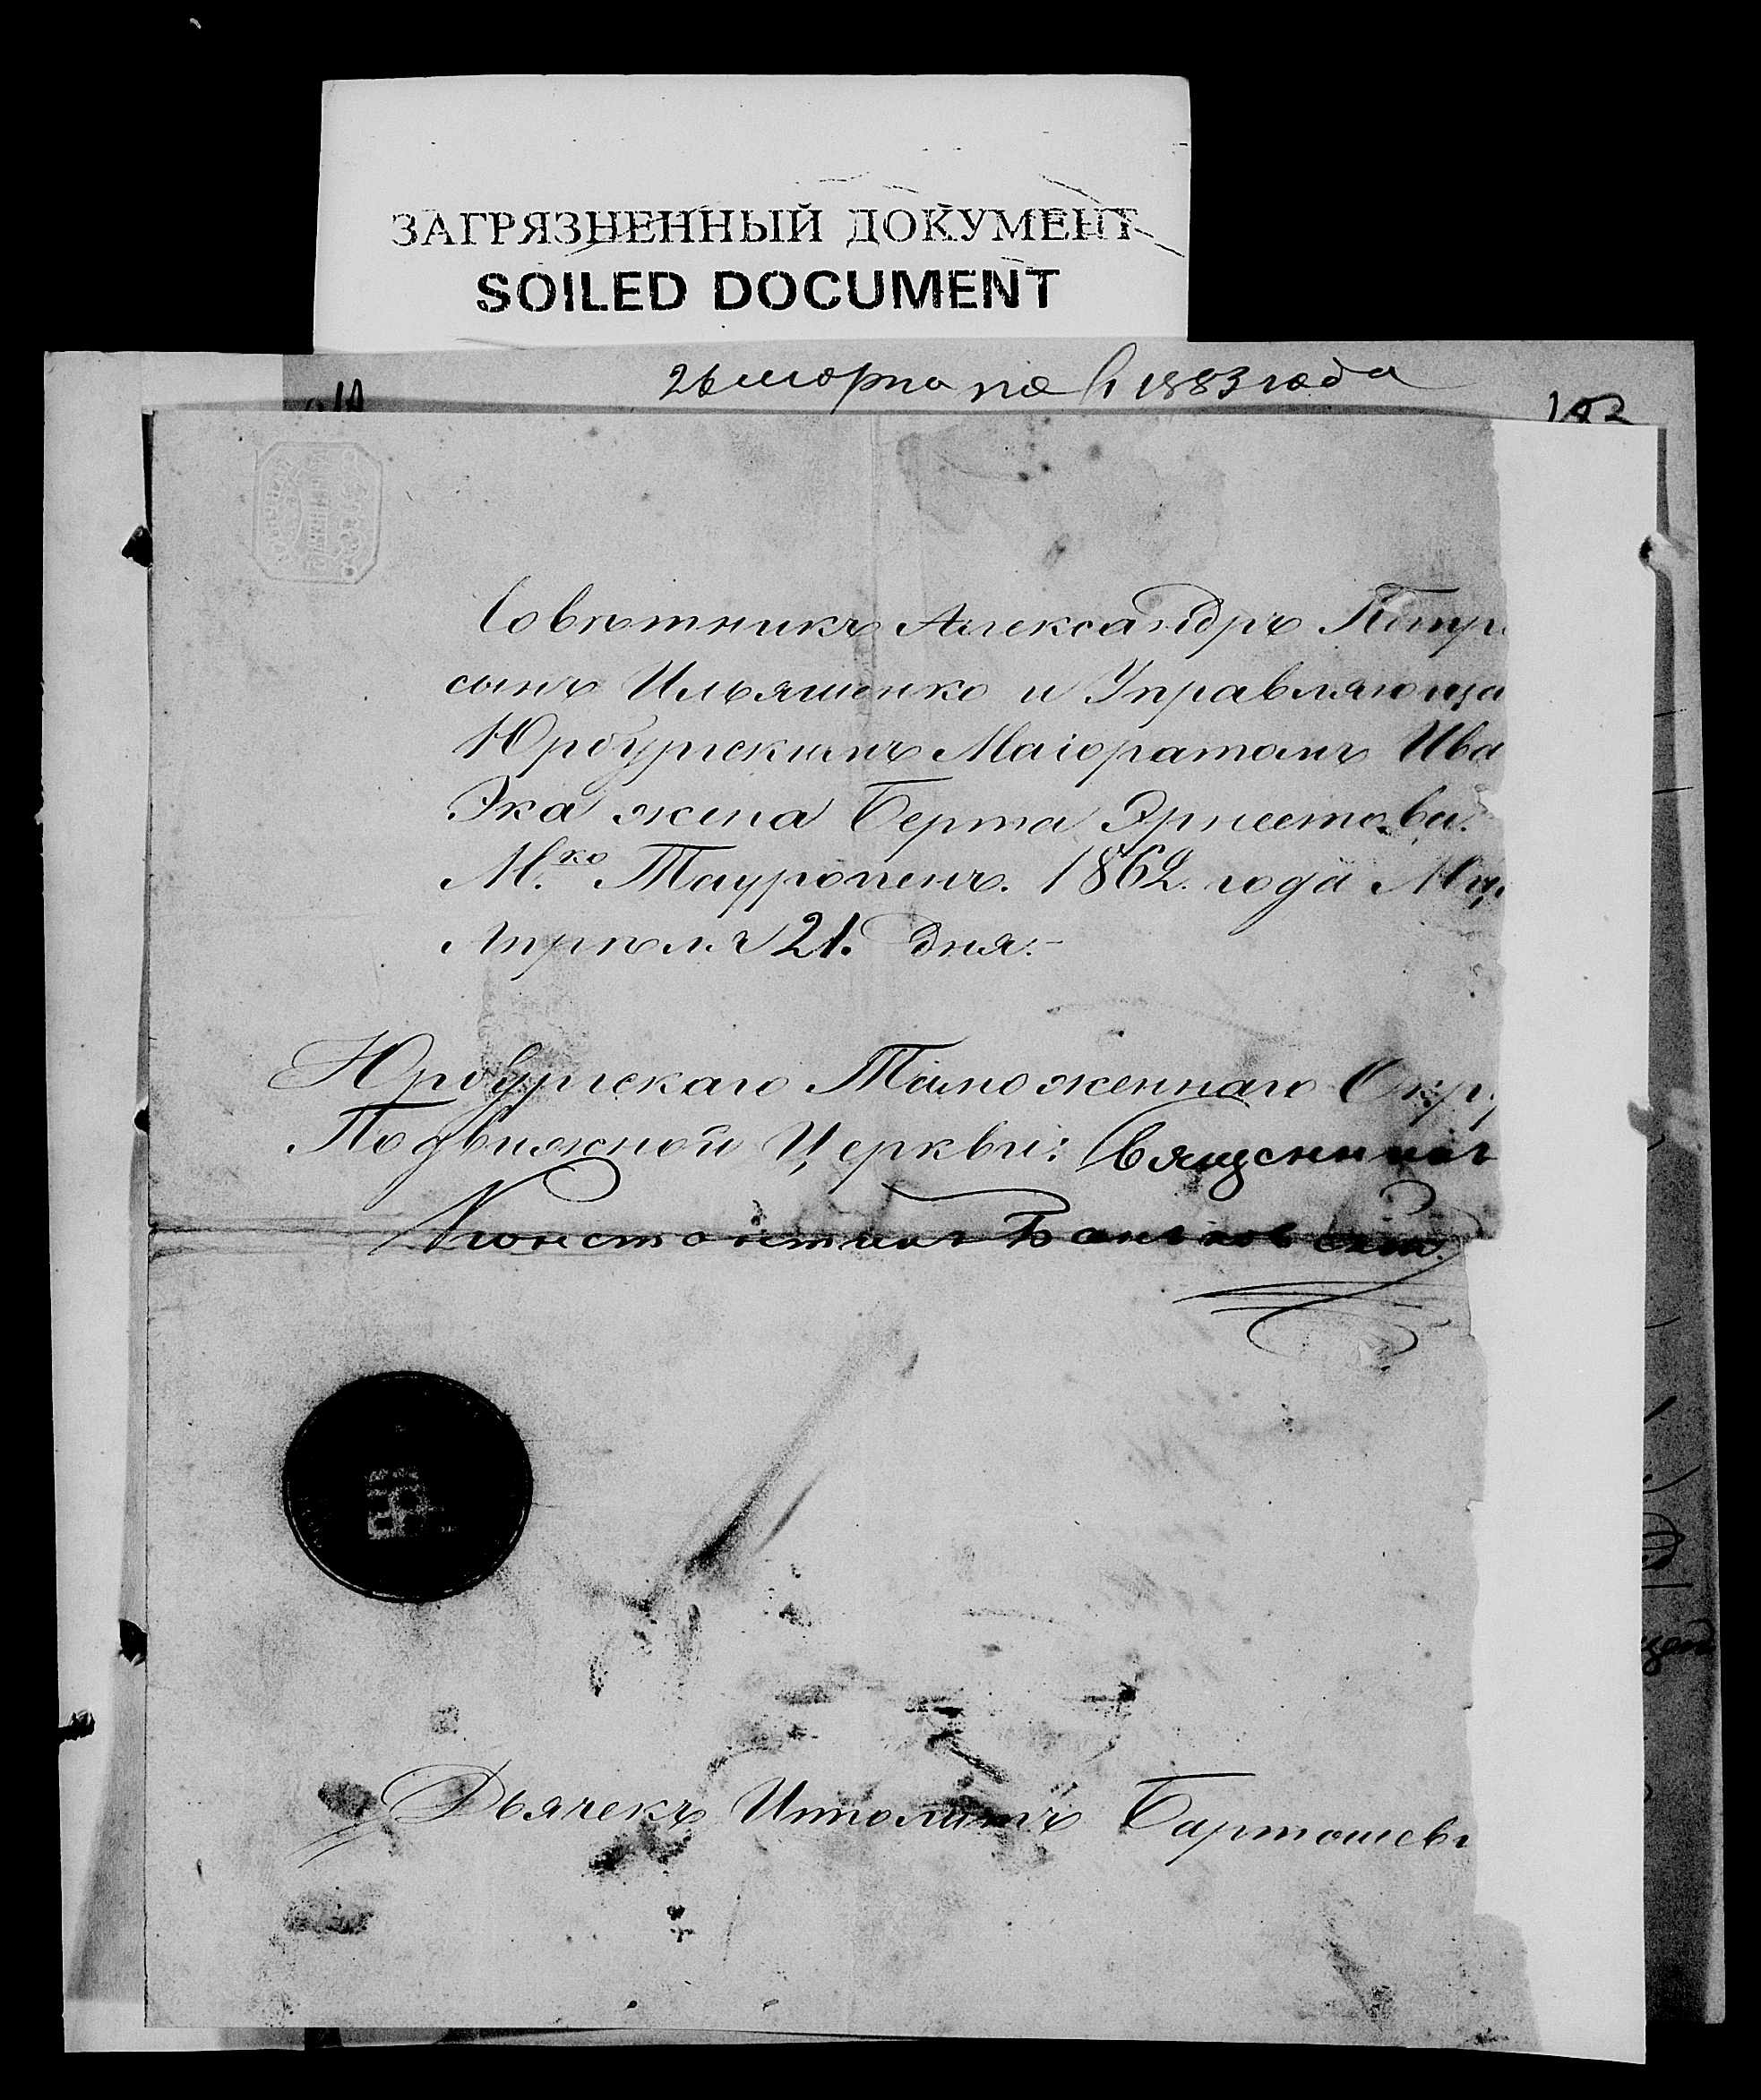 ЗАГРЯЗНЕННЫЙ ДОКУМЕНТ
SOILED DOCUMENT
26 марта 1883 года
Совѣтникъ Александръ Петр
сынъ Ильяшенко и Управляюща
Юрбургскимъ Маіоратомъ Ива
Эка жена Берта Эрнестова.
М.ко Тауроггенъ. 1862. года М
Апрѣля 21. дня.-
Юрбургскаго Таможеннаго Окр
Подвижной Церкви: Священникъ
Константинъ Баньковскій
Дьячекъ Ипполитъ Бартошеви